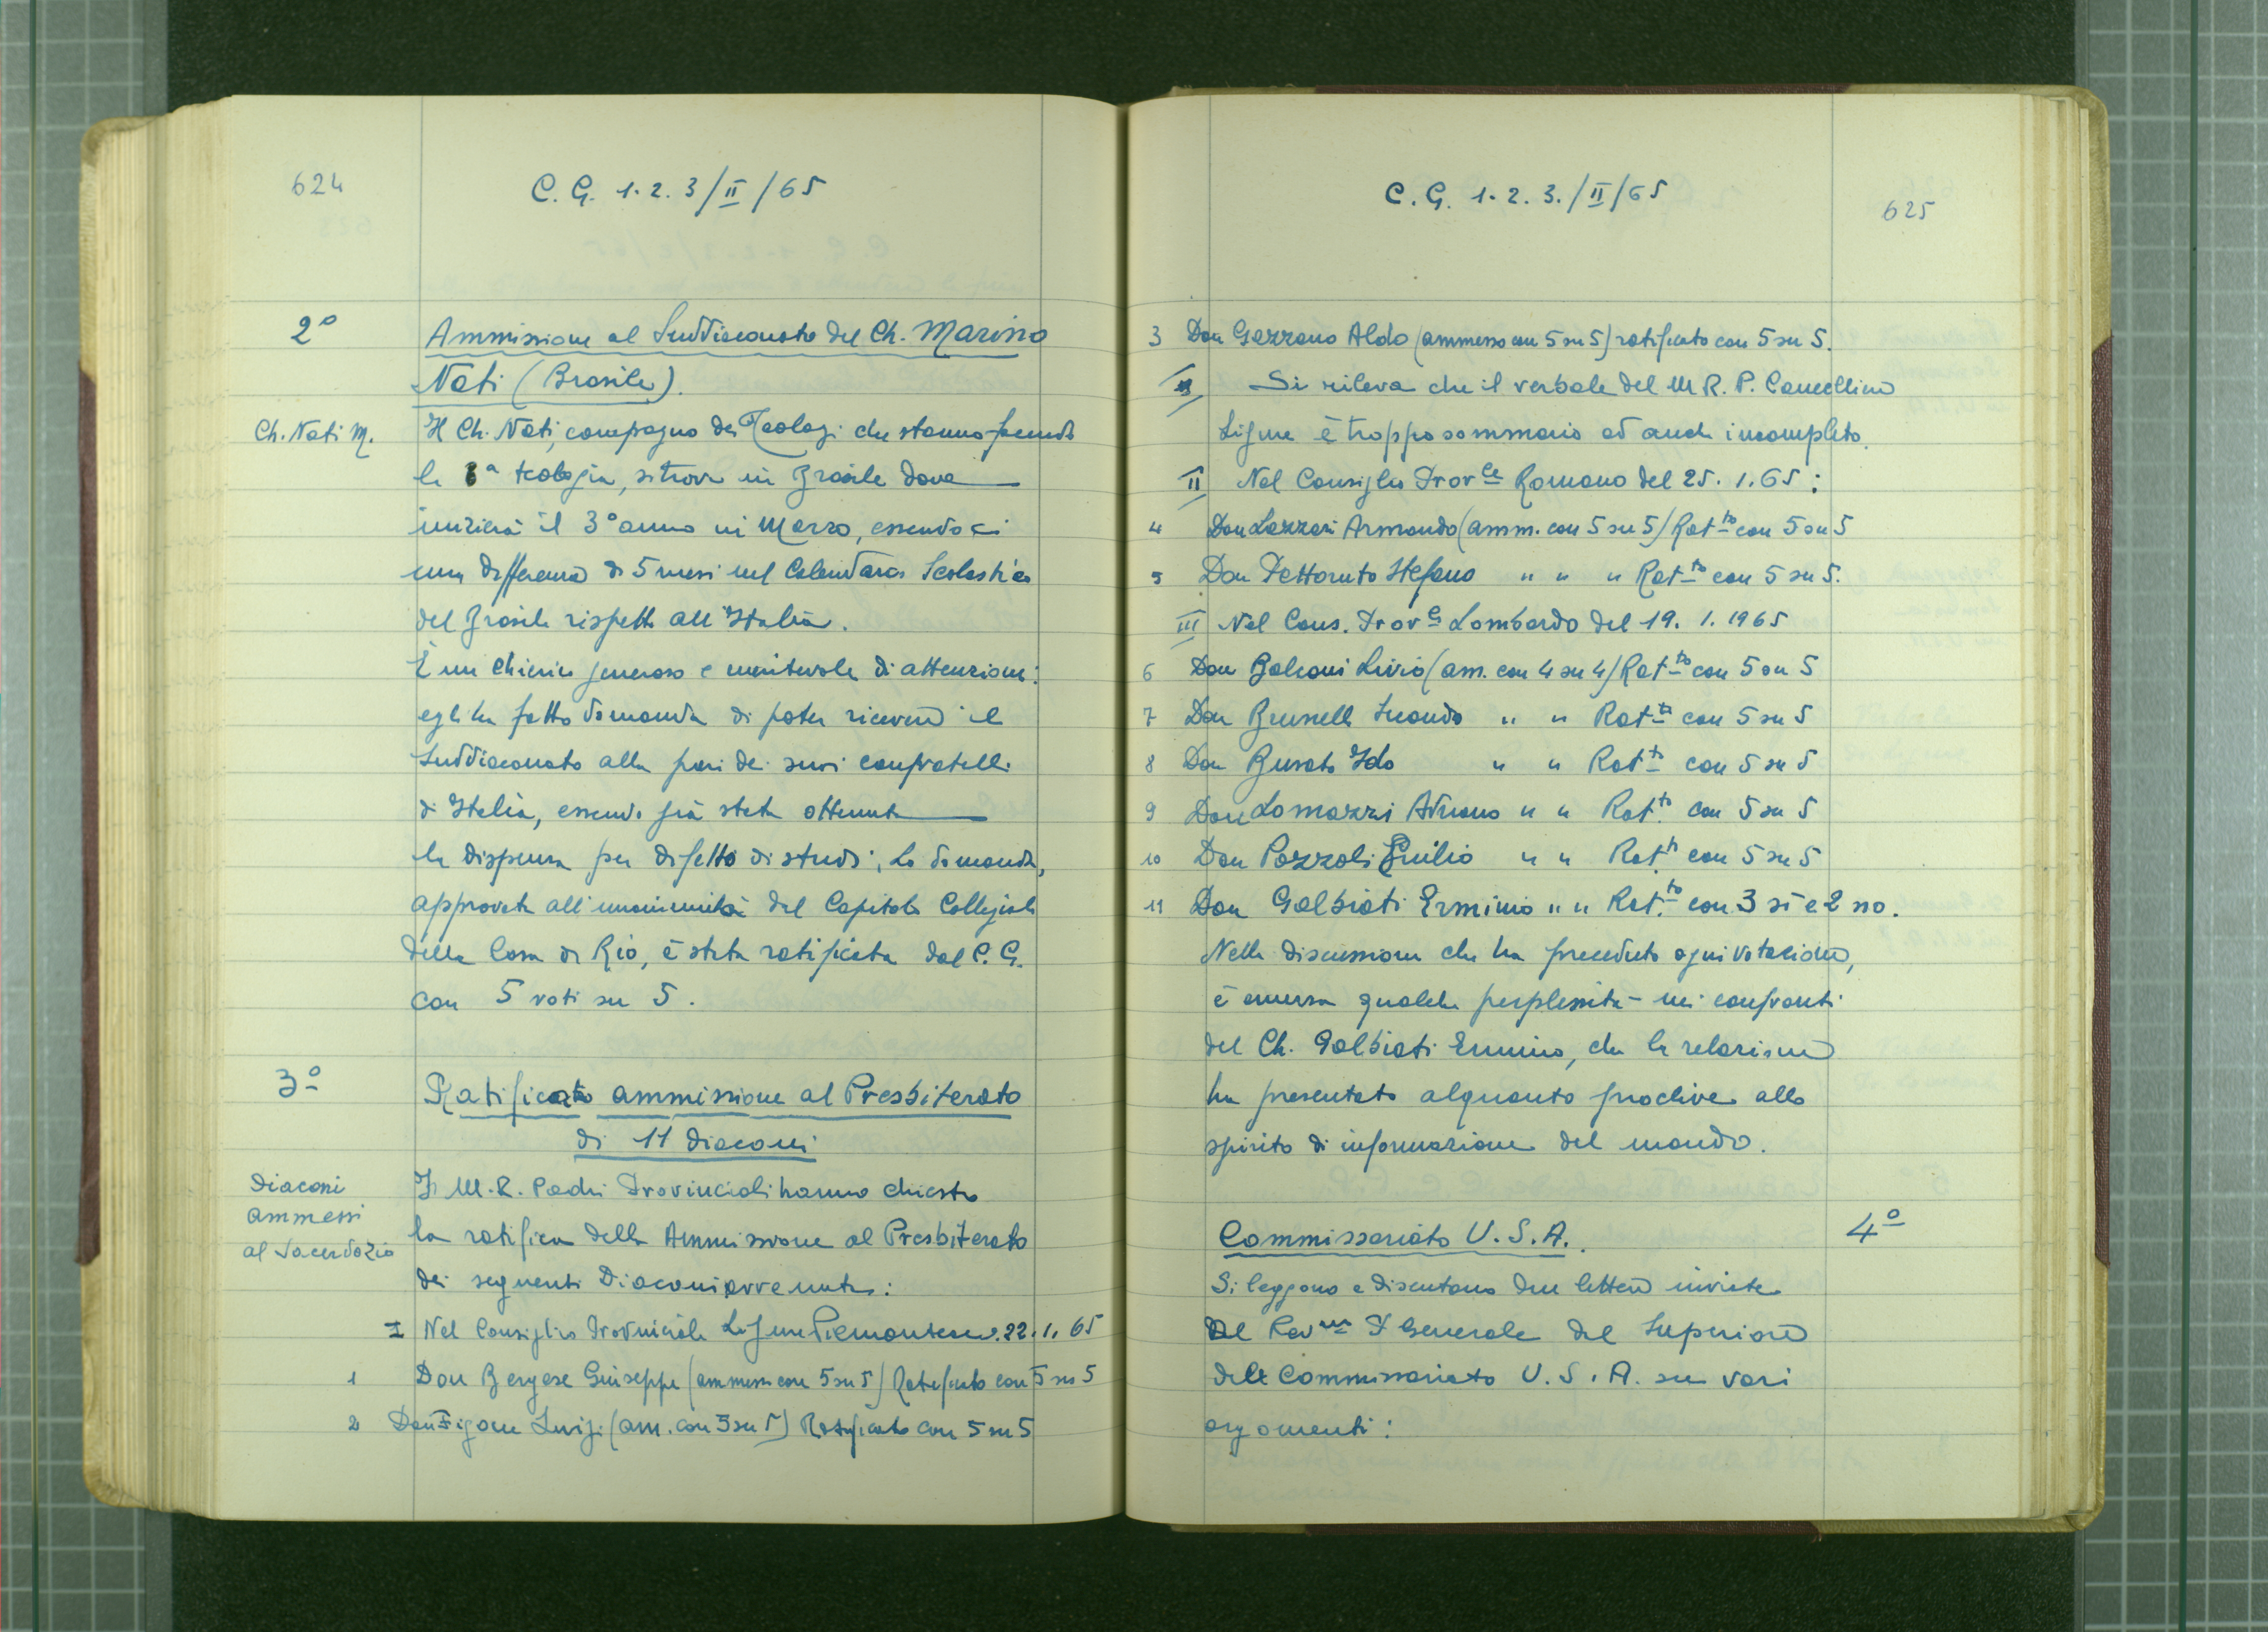 624
C. G. 1. 2. 3/II/65
2°
Ammissione al Suddiaconato del Ch. Marino
Nati (Brasile).
Ch. Nati M.
Il Ch. Nati, compagno dei Teologi che stanno facendo
la 3ª teologia, si trova in Brasile dove
inizierà il 3° anno in Marzo, essendoci
una differenza di 5 mesi nel Calendario Scolastico
del Brasile rispetto all'Italia.
È un Chierico generoso e meritevole di attenzioni:
egli ha fatto domanda di poter ricevere il
Suddiaconato alla pari dei suoi confratelli
di Italia, essendo già stata ottenuta
la dispensa per difetto di studi; La domanda,
approvata all'unanimità dal Capitolo Collegiale
della Casa di Rio, è stata ratificata dal C. G.
con 5 voti su 5.
3°
Ratificata ammissione al Presbiterato
di 11 diaconi
Diaconi
ammessi
al Sacerdozio
I M. R. Padri Provinciali hanno chiesto
la ratifica della Ammissione al Presbiterato
dei seguenti Diaconi avvenuta:
I Nel Consiglio Provinciale Ligure Piemontese 22. 1. 65
1 Don Bergese Giuseppe (ammesso con 5 su 5) Ratificato con 5 su 5
2 Don Figone Luigi (am. con 5 su 5) Ratificato con 5 su 5
C. G. 1. 2. 3./II/65
625
3 Don Gazzano Aldo (ammesso con 5 su 5) ratificato con 5 su 5.
Si rileva che il verbale del M R. P. Cancelliere
Ligure è troppo sommario ed anche incompleto.
II Nel Consiglio Prov.le Romano del 25. 1. 65:
4 Don Lazzari Armando (amm. con 5 su 5) Rat.to con 5 su 5
5 Don Pettoruto Stefano " " " Rat.to con 5 su 5.
III Nel Cons. Prov.le Lombardo del 19. 1. 1965
6 Don Balconi Livio (am. con 4 su 4) Rat.to con 5 su 5
7 Don Brunelli Secondo " " Rat.to con 5 su 5
8 Don Busato Ido " " Rat.to con 5 su 5
9 Don Lomazzi Adriano " " Rat.to con 5 su 5
10 Don Pozzoli Emilio " " Rat.to con 5 su 5
11 Don Galbiati Erminio " " Rat.to con 3 sì e 2 no.
Nella discussione che ha preceduto ogni votazione,
è emersa qualche perplessità nei confronti
del Ch. Galbiati Erminio, che la relazione
ha presentato alquanto proclive allo
spirito di informazione del mondo.
Commissariato U. S. A.
4°
Si leggono e discutono due lettere inviate
al Rev.mo P. Generale dal Superiore
del Commissariato U. S. A. su vari
argomenti: